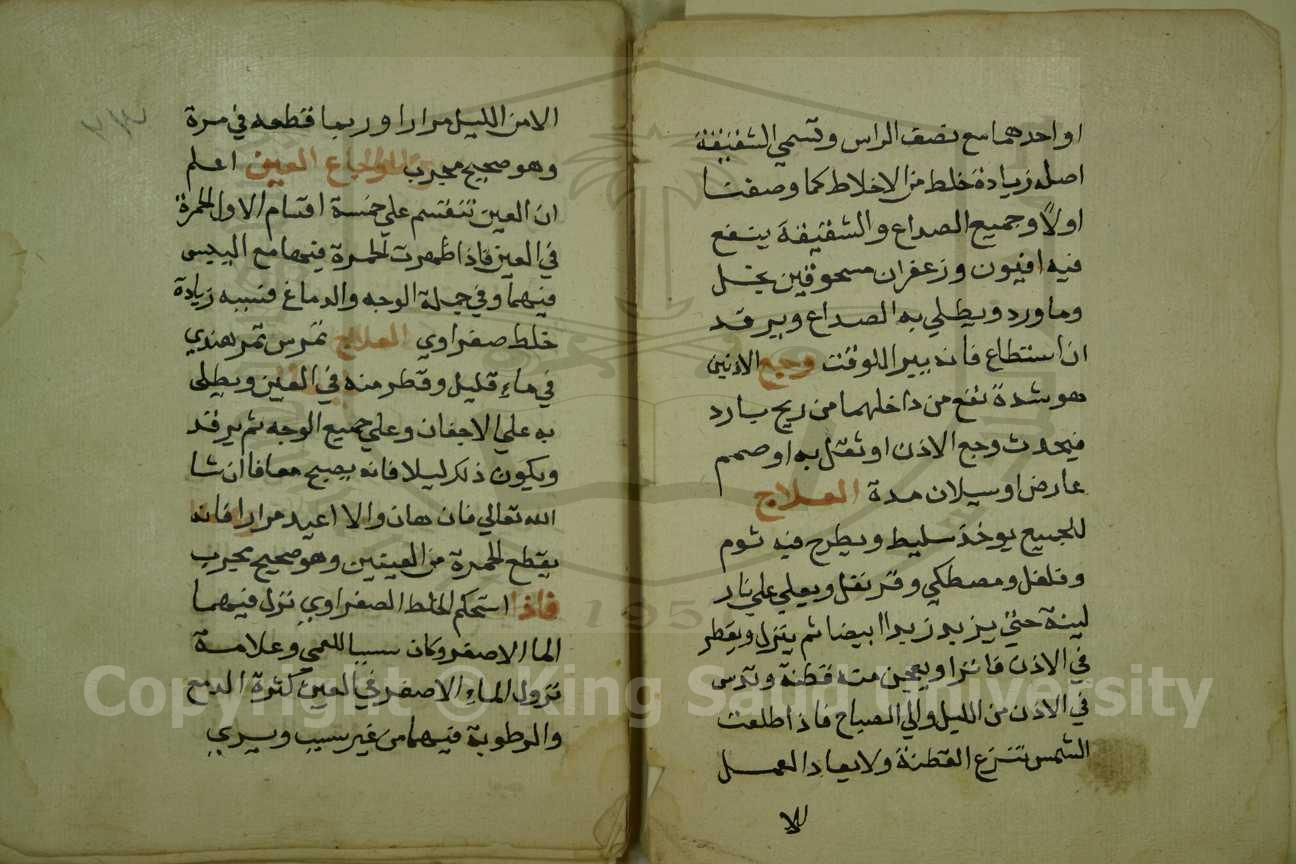 او احدهما مع نصف الراس وتسمي الشقيقة
اصله زيادة خلط من الاخلاط كما وصفنا
اولاً وجميع الصداع والشقيقة ينفع
فيه افيون وزعفران مسحوقين بخل
وماورد ويطلي به الصداع ويرقد
ان استطاع فانه يبرا للوقت وجع الاذنين
هو شدة تقع من داخلهما من ريح بارد
فيحدث وجع الاذن او ثقل به او صمم
عارض او سيلان مدة العلاج
للجميع يوخذ سليط ويطرح فيه ثوم
وفلفل ومصطكي وقرنفل ويغلي علي نار
لينة حتي يزبد زبدا ابيضا ثم ينزل ويقطر
في الاذن فاترا ويعجن منه قطنة وتدس
في الاذن من الليل والي الصباح فاذا طلعت
الشمس تنزع القطنة ولا يعاد العمل
الا
الا من الليل مرارا وربما قطعه في مرة
وهو صحيح مجرب اوجاع العين اعلم
ان العين تنقسم علي خمسة اقسام الاول الحمرة
في العين فاذا ظهرت الحمرة فيهما مع اليبس
فيهما وفي جملة الوجه والدماغ فسببه زيادة
خلط صفراوي العلاج تمرس تمر هندي
في ماء قليل وقطر منه في العين ويطلي
به علي الاجفان وعلي جميع الوجه ثم يرقد
ويكون ذلك ليلا فانه يصبح معافا ان شا
الله تعالي فان هان والا اعيد مرارا فانه
يقطع الحمرة من العينين وهو صحيح مجرب
فاذا استحكم الخلط الصفراوي نزل فيهما
الما الاصفر وكان سببا للعمي وعلامة
نزول الماء الاصفر في العين كثرة الدمع
والرطوبة فيهما من غير سبب ويري
Copyright © King Saud University
195